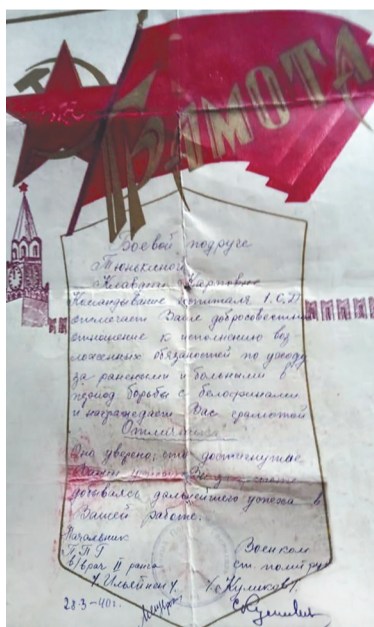 ГРАМОТА
Боевой подруге
Тюнькесной
Клавдии Карповне
Командывание госпиталя
отмечает Ваше добросовестное
отношение к исполнению воз
ложенных обязаностей по уходу
за ранеными и больными в
период борьбы с белофинами
и награждает Вас грамотой
Отличника
Оно уверено, что достигнутые
добиваясь дальнейшего успеха в
Вашей работе.
Начальник
ППГ
в/врач II ранга
Военком
ст. политрук
/Куликов/
28-3-40г.